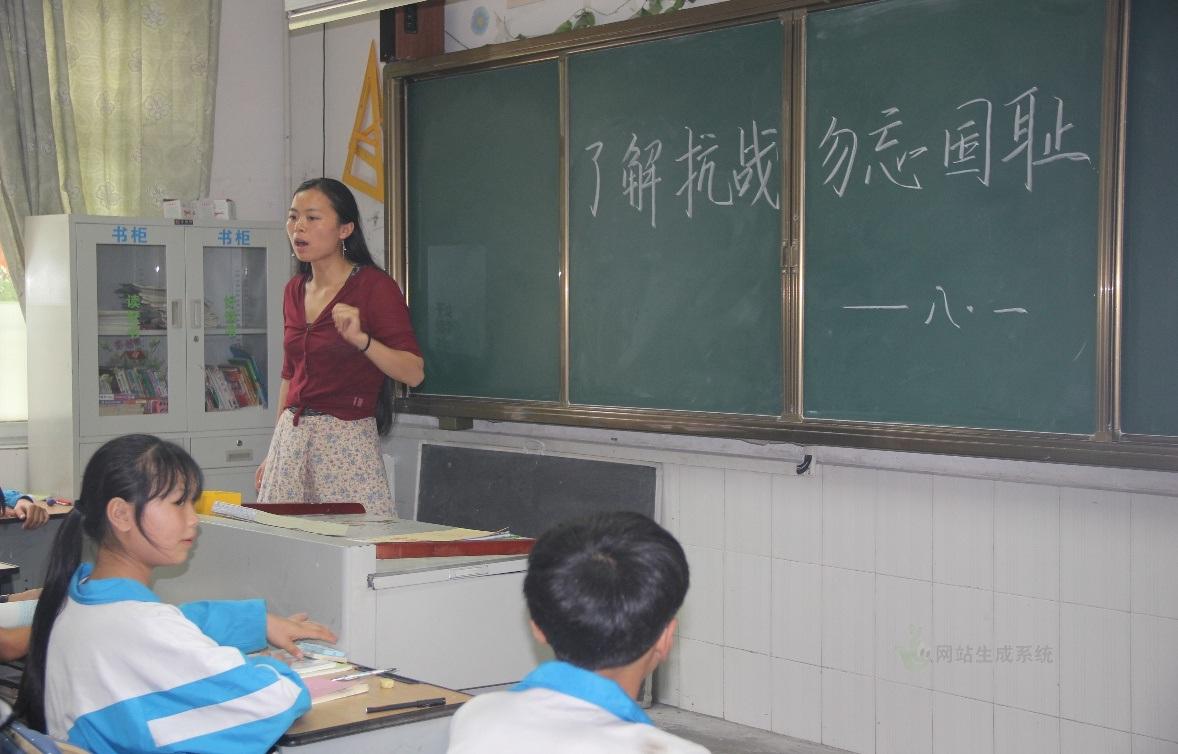 了解抗战 勿忘国耻
一八·一
书柜 书柜
读 好
网站生成系统